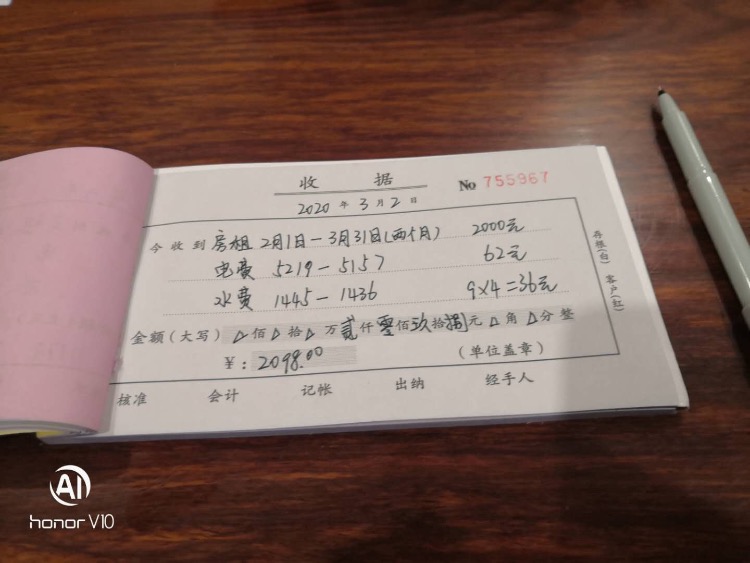 收 据
No 755967
2020 年 3 月 2 日
今收到 房租 2月1日-3月31日(两个月) 2000元
电费 5219-5157 62元
水费 1445-1436 9×4=36元
金额(大写) △佰△拾△万贰仟零佰玖拾捌元△角△分整
¥: 2098.00 (单位盖章)
核准 会计 记帐 出纳 经手人
存根(白) 客户(红)
AI
honor V10